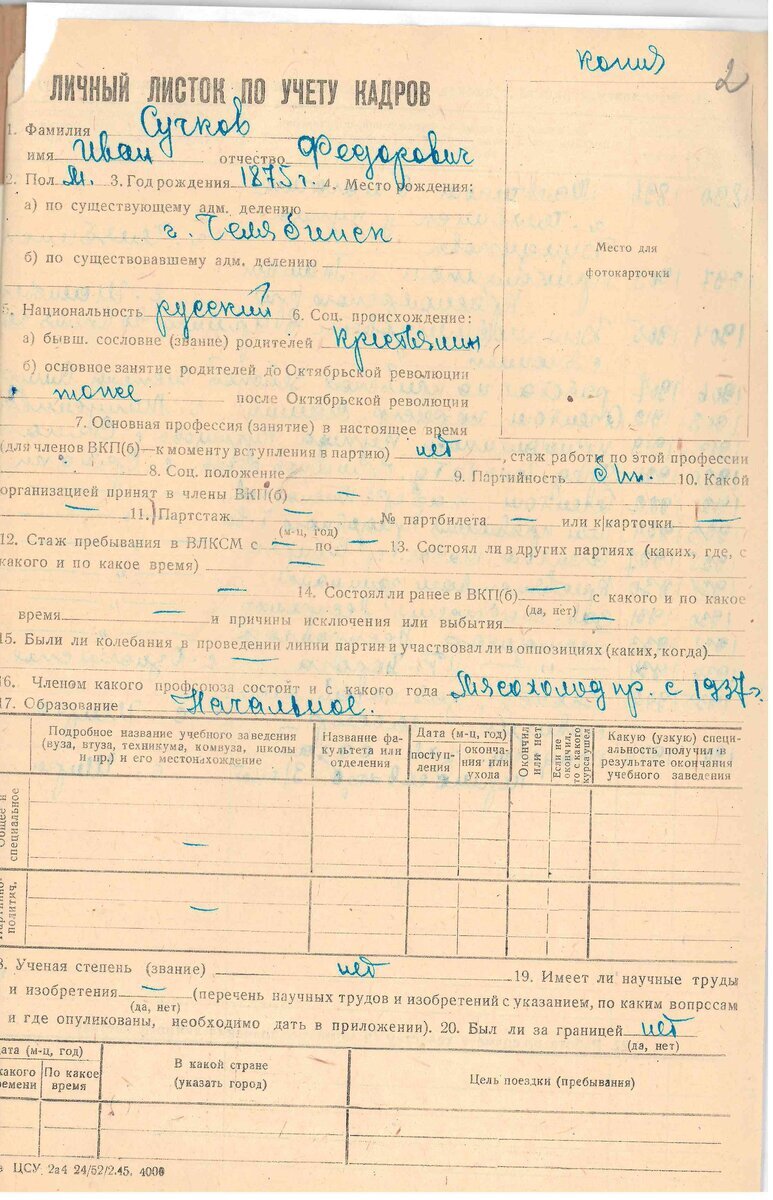 копия
2
ЛИЧНЫЙ ЛИСТОК ПО УЧЕТУ КАДРОВ
1. Фамилия Сучков
имя Иван отчество Федорович
2. Пол м. 3. Год рождения 1875 г. 4. Место рождения:
а) по существующему адм. делению
г. Челябинск
б) по существовавшему адм. делению
Место для
фотокарточки
5. Национальность русский 6. Соц. происхождение:
а) бывш. сословие (звание) родителей крестьянин
б) основное занятие родителей до Октябрьской революции
тоже после Октябрьской революции
7. Основная профессия (занятие) в настоящее время
(для членов ВКП(б)—к моменту вступления в партию) нет, стаж работы по этой профессии
8. Соц. положение 9. Партийность 10. Какой
организацией принят в члены ВКП(б) —
— 11. Партстаж — № партбилета — или к/карточки —
(м-ц, год)
12. Стаж пребывания в ВЛКСМ с — по — 13. Состоял ли в других партиях (каких, где, с
какого и по какое время) —
— 14. Состоял ли ранее в ВКП(б) — с какого и по какое
(да, нет)
время — и причины исключения или выбытия —
15. Были ли колебания в проведении линии партии и участвовал ли в оппозициях (каких, когда)
—
16. Членом какого профсоюза состоит и с какого года Мясохолод пр. с 1937 г.
17. Образование Начальное.
Подробное название учебного заведения (вуза, втуза, техникума, комвуза, школы и пр.) и его местонахождение
Название факультета или отделения
Дата (м-ц, год)
поступления
окончания или ухода
Окончил или нет
Если не окончил, то с какого курса ушел
Какую (узкую) специальность получил в результате окончания учебного заведения
Общее и специальное
—
политич.
—
8. Ученая степень (звание) нет 19. Имеет ли научные труды
и изобретения — (перечень научных трудов и изобретений с указанием, по каким вопросам
(да, нет)
и где опуликованы, необходимо дать в приложении). 20. Был ли за границей нет
(да, нет)
Дата (м-ц, год)
какого времени
По какое время
В какой стране (указать город)
Цель поездки (пребывания)
ЦСУ 2а4 24/52/2.45. 4006